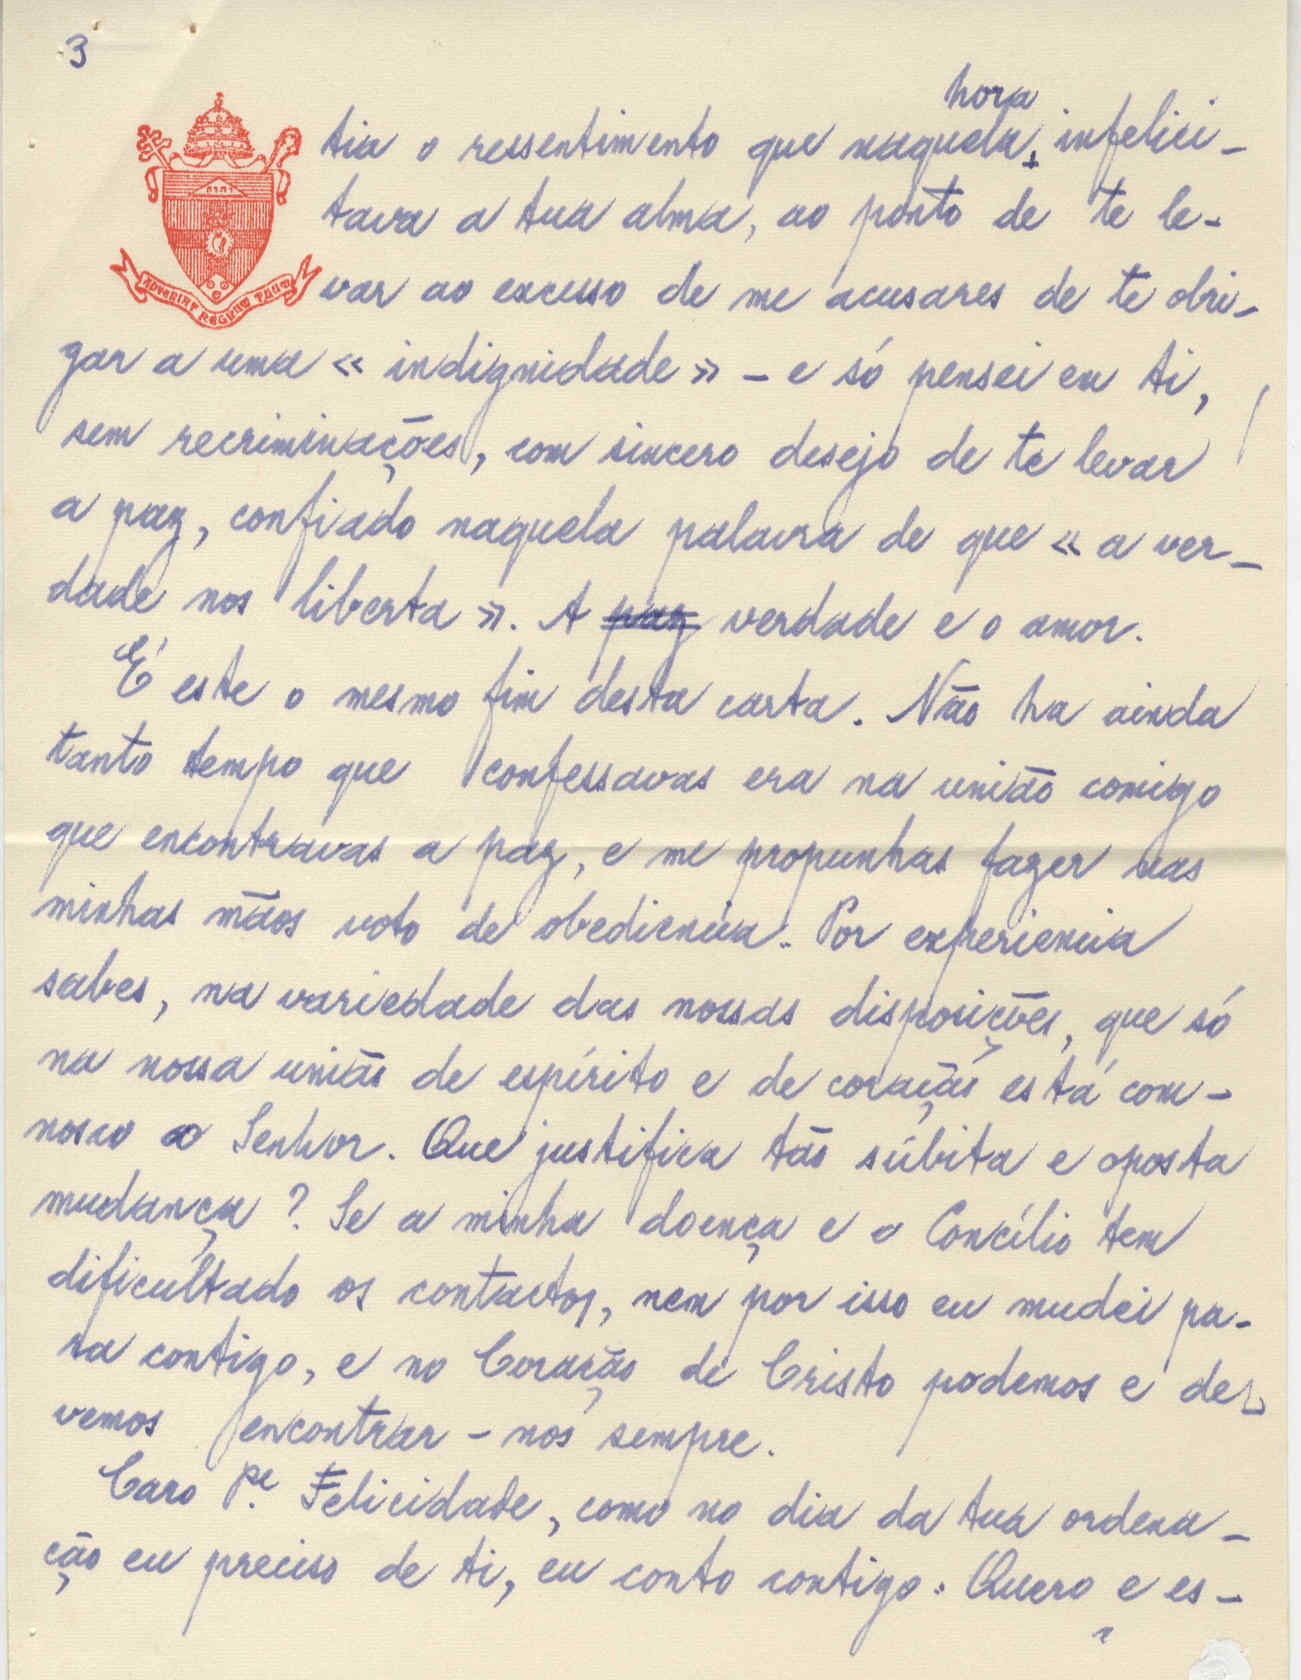 3
hora
tia o ressentimento que naquela, infelici-
tava a tua alma, ao ponto de te le-
var ao excesso de me acusares de te obri-
ADVENIAT REGNUM TUUM
gar a uma « indignidade » - e só pensei em ti,
sem recriminações, com sincero desejo de te levar
a paz, confiado naquela palavra de que « a ver-
dade nos liberta ». A paz verdade e o amor.
É este o mesmo fim desta carta. Não ha ainda
tanto tempo que confessavas era na união comigo
que encontravas a paz, e me propunhas fazer nas
minhas mãos voto de obediencia. Por experiencia
sabes, na variedade das nossas disposições, que só
na nossa união de espírito e de coração está com-
nosco o Senhor. Que justifica tão súbita e oposta
mudança? Se a minha doença e o Concílio tem
dificultado os contactos, nem por isso eu mudei pa-
ra contigo, e no Coração de Cristo podemos e de-
vemos encontrar-nos sempre.
Caro Pe. Felicidade, como no dia da tua ordena-
ção eu preciso de ti, eu conto contigo. Quero e es-